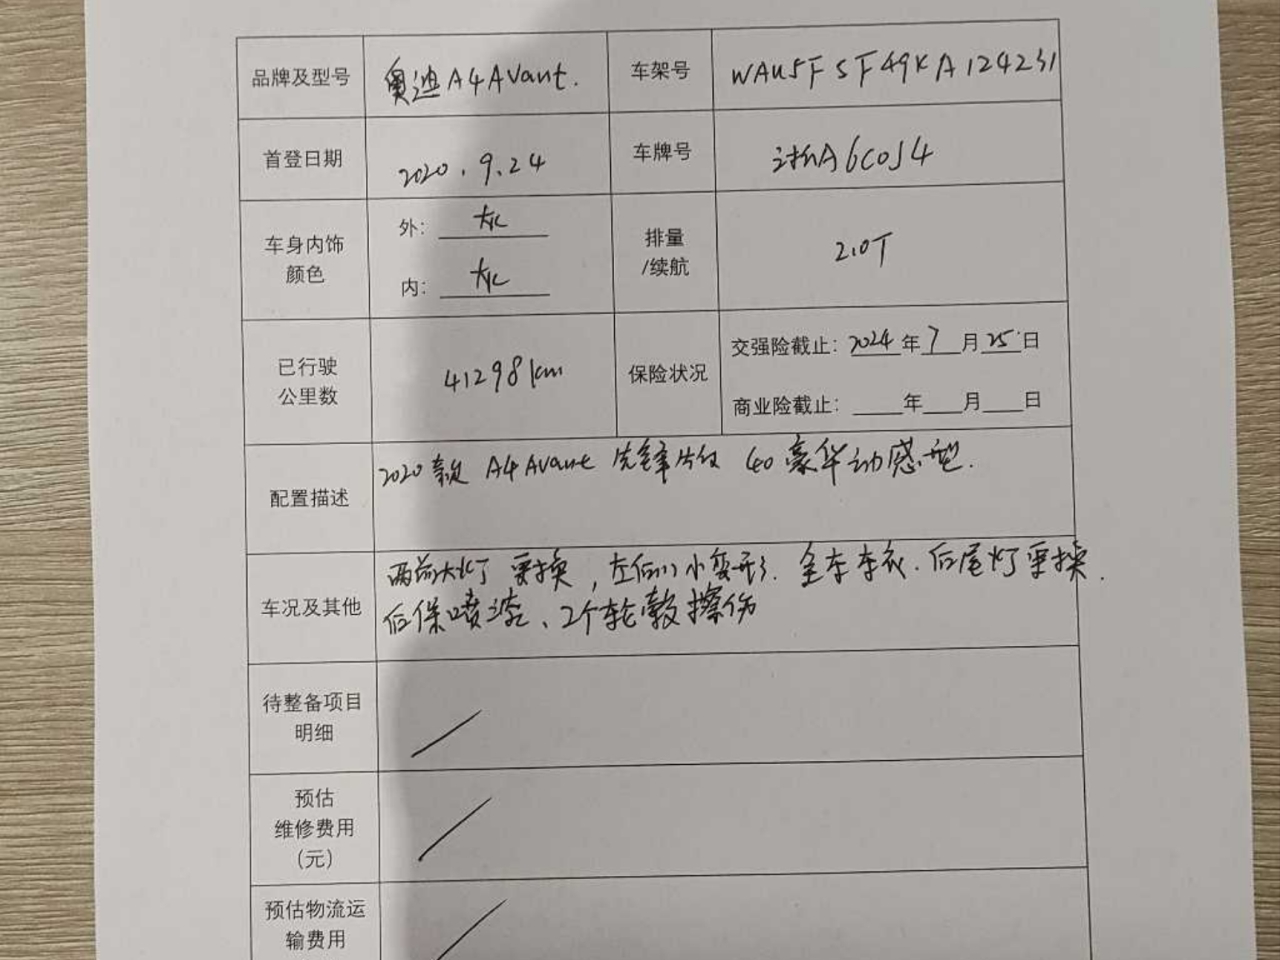 品牌及型号 奥迪A4Avant. 车架号 WAU5FSF49KA124231
首登日期 2020.9.24 车牌号 浙A6C0J4
车身内饰颜色 外: 灰 内: 灰 排量/续航 2.0T
已行驶公里数 41298km 保险状况 交强险截止: 2024年7月25日
商业险截止: ____年____月____日
配置描述 2020款 A4Avant 先锋派 40 豪华动感型.
车况及其他 两前大灯要换,左后门小变形. 全车车衣. 后尾灯要换.
后保喷漆、2个轮毂擦伤
待整备项目明细
预估维修费用(元)
预估物流运输费用